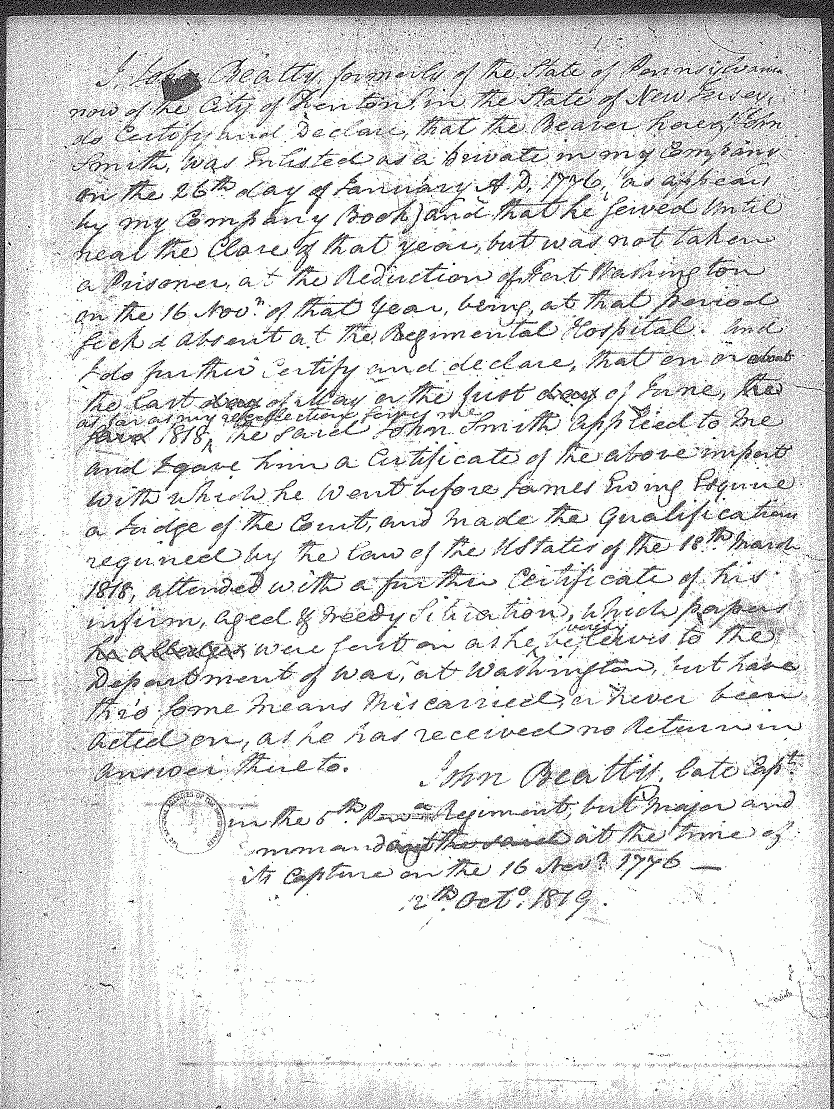 I, John Beatty, formerly of the State of Pennsylvania
now of the City of Trenton, in the State of New Jersey,
do Certify and Declare, that the Bearer hereof, John
Smith, was Enlisted as a private in my Company
on the 26th day of January A.D. 1776, (as appears
by my Company Book) and that he served Until
near the Close of that year, but was not taken
a Prisoner, at the Reduction of Fort Washington
on the 16 Novr. of that Year, being, at that period
sick & absent at the Regimental Hospital. And
I do further Certify and declare, that on or about
the last day of May or the first days of June, the
as far as my recollection serves me
year 1818, the said John Smith applied to me
and I gave him a Certificate of the above import
with which he went before James Ewing Esquire
a Judge of the Court, and made the Qualification
required by the Law of the UStates of the 18th March
1818, attended with a further Certificate of his
infirm, aged & needy Situation, which papers
he alledges were sent on as he verily believes to the
Department of War, at Washington, but have
thro some means Miscarried, or never been
acted on, as he has received no Return in
answer thereto.
John Beatty, late Capt.
in the 5th Penna Regiment, but Major and
at the time of
its Capture on the 16 Novr. 1776 —
12th Octo. 1819.